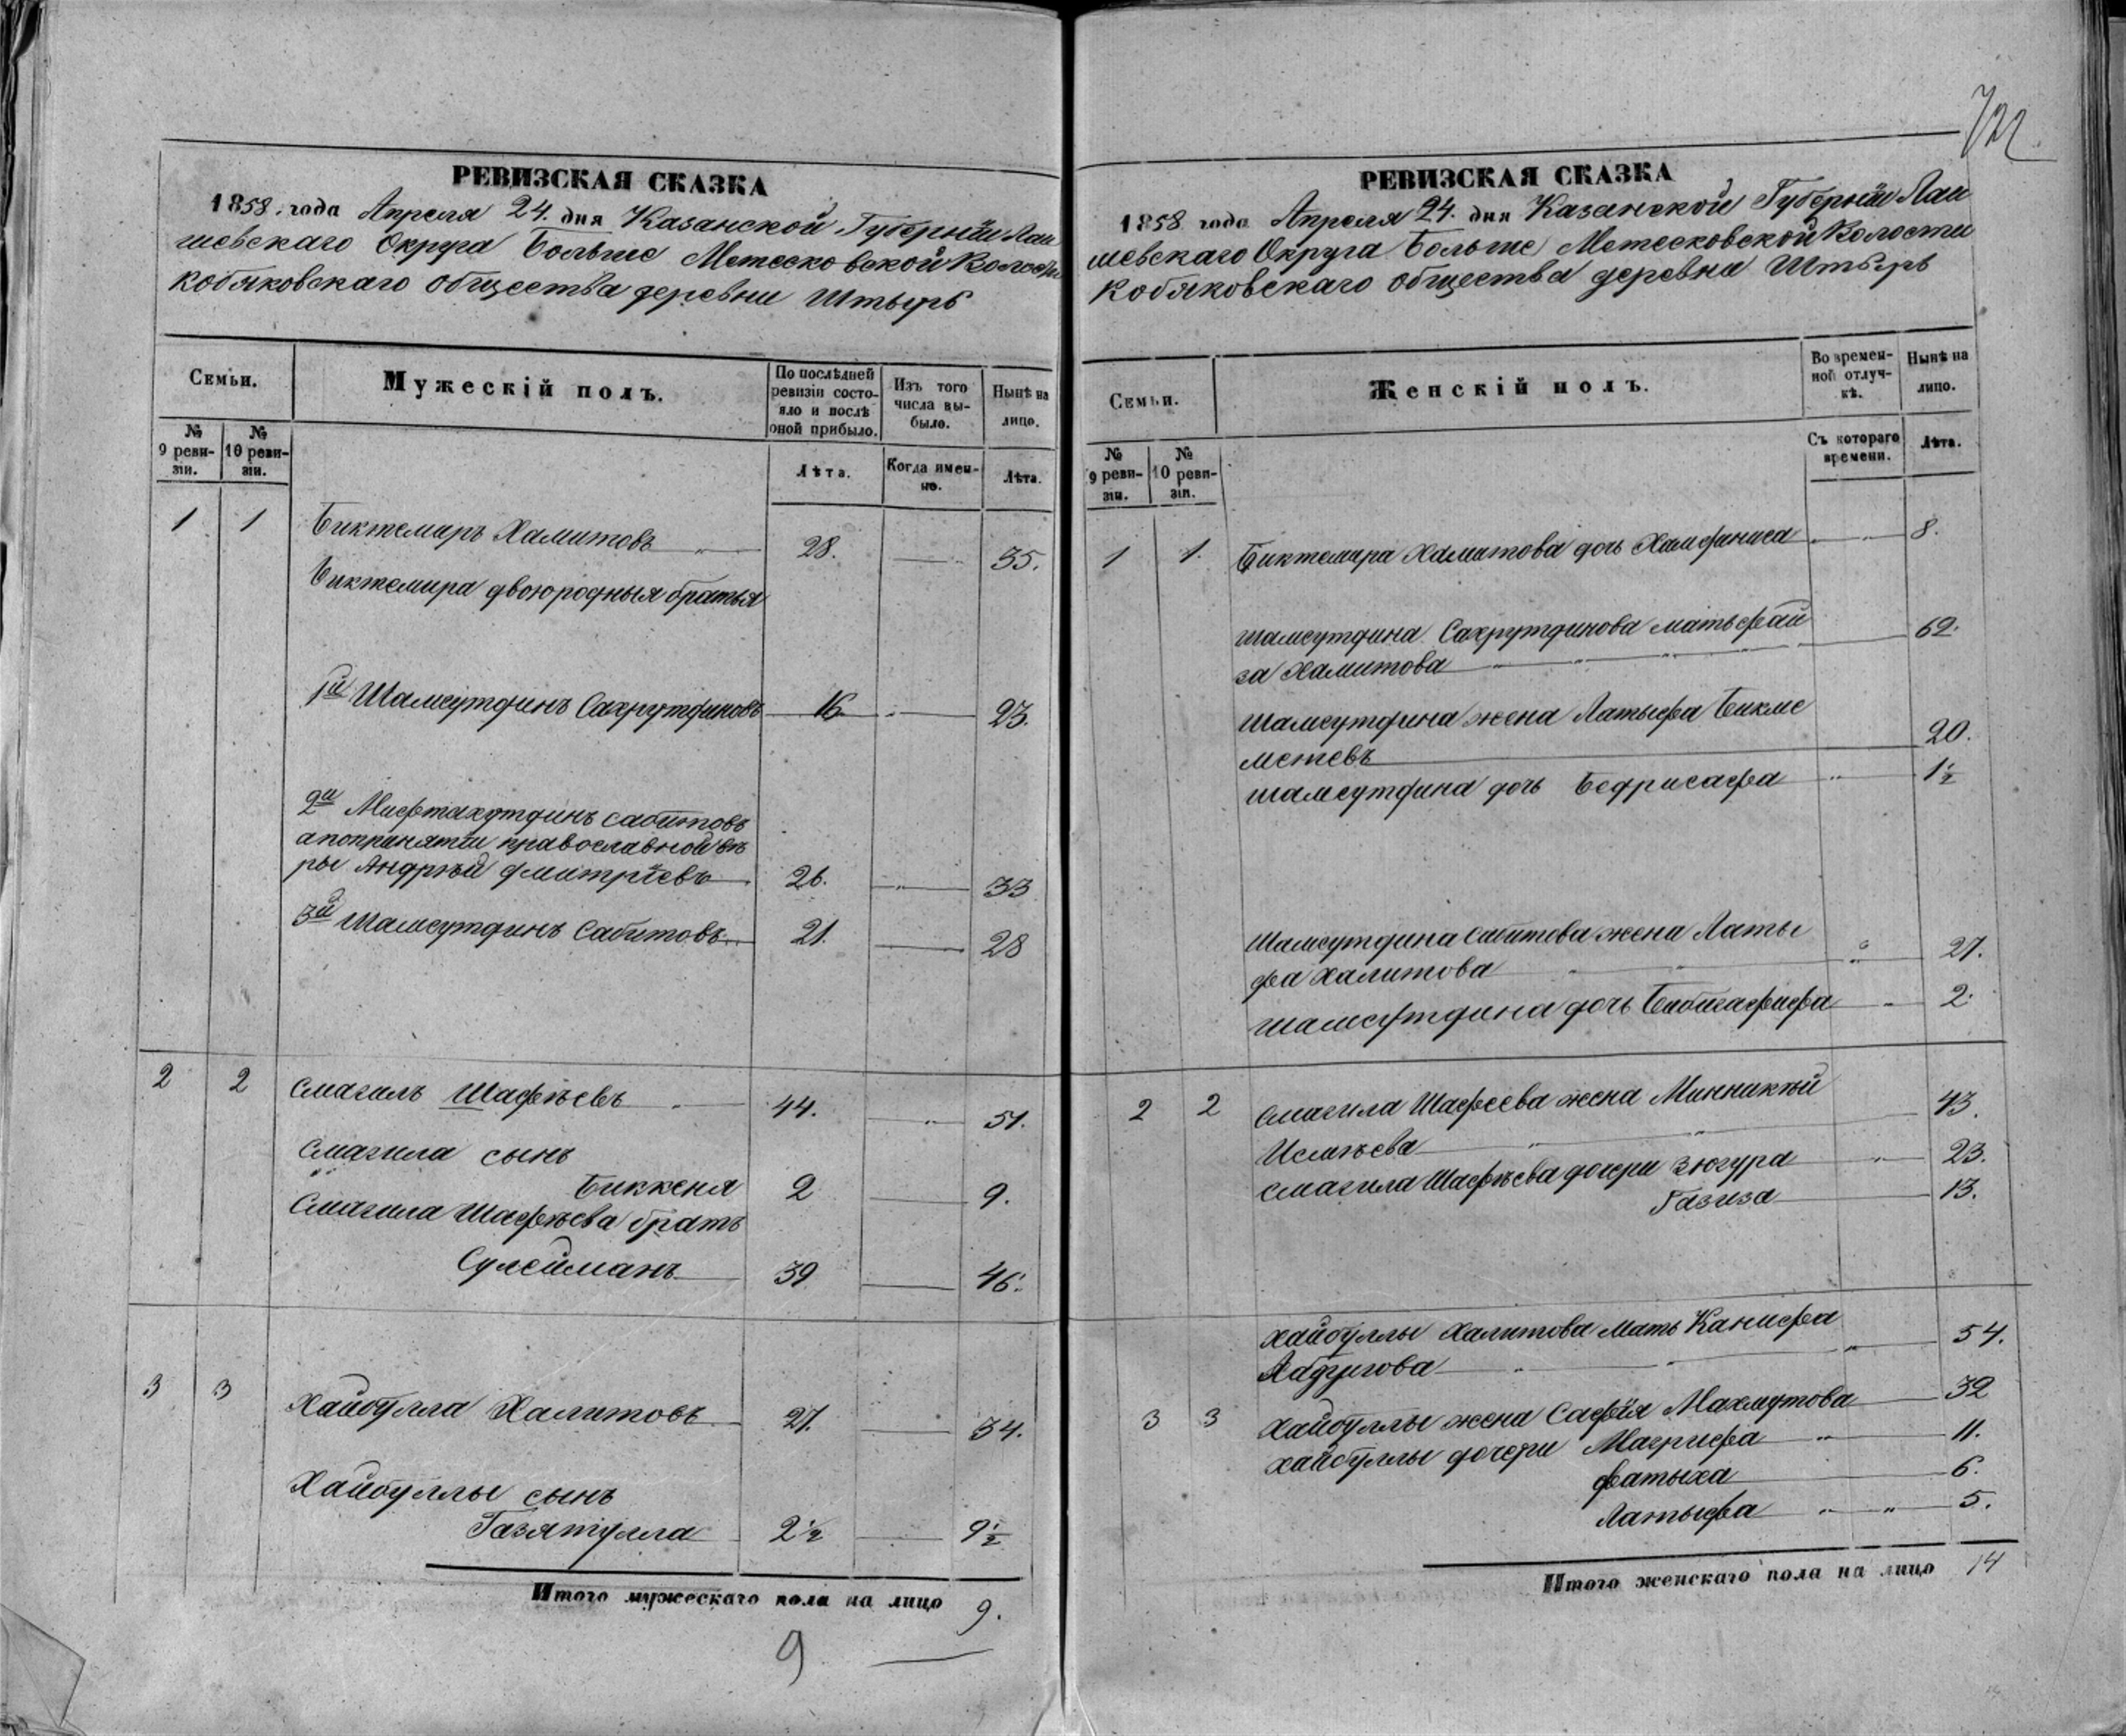 722
РЕВИЗСКАЯ СКАЗКА
1858. года Апреля 24. дня Казанской Губерніи Лаи
шевскаго Округа Больше Метесковской Волости
Кобяковскаго общества деревни Штырь
Семьи.
Мужескій полъ.
По послѣдней ревизіи состояло и послѣ оной прибыло.
Изъ того числа выбыло.
Нынѣ на лицо.
№ 9 ревизіи.
№ 10 ревизіи.
Лѣта.
Когда именно.
Лѣта.
1 1 Биктемиръ Хамитовъ 28. 35.
Биктемира двоюродныя братья
1й Шамсутдинъ Сахрутдиновъ 16 23.
2й Мифтахутдинъ Сабитовъ
а попринятіи православной вѣ
ры Андрѣй Дмитріевъ 26. 33
3й Шамсутдинъ Сабитовъ 21. 28
2 2 Смагилъ Шафѣевъ 44. 51.
Смагила сынъ
Биккеня 2 9.
Смагила Шафѣева братъ
Сулейманъ 39 46.
3 3 Хайбулла Халитовъ 27. 34.
Хайбуллы сынъ
Газятулла 2½ 9½
Итого мужескаго пола на лицо 9.
9
РЕВИЗСКАЯ СКАЗКА
1858 года Апреля 24. дня Казанской Губерніи Лаи
шевскаго Округа Больше Метесковской Волости
Кобяковскаго общества деревни Штырь
Семьи.
Женскій полъ.
Во временной отлучкѣ.
Нынѣ на лицо.
№ 9 ревизіи.
№ 10 ревизіи.
Съ котораго времени.
Лѣта.
1 1. Биктемира Хамитова дочь 8.
Шамсутдина Сахрутдинова мать Фай
за Хамитова 62.
Шамсутдина жена Латыфа Бикме
метевъ 20.
Шамсутдина дочь Бедрисафа 1½
Шамсутдина Сабитова жена Латы
фа Халитова 27.
Шамсутдина дочь Бибигафифа 2.
2 2 Смагила Шафеева жена Минникѣй
Исмѣева 43.
Смагила Шафѣева дочери Зюгура 23.
Газиза 13.
Хайбуллы Халитова мать Канифа
54.
3 3 Хайбуллы жена Сафія Махмутова 32
Хайбуллы дочери Магрифа 11.
Фатыха 6.
Латыфа 5.
Итого женскаго пола на лицо 14